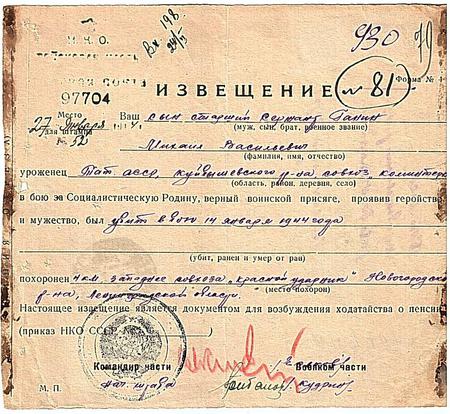 Н. К. О.
Вх. 198
930
79
97704
Форма № 4
ИЗВЕЩЕНИЕ № 81
Место
для штампа
27 января 1944 г.
№ 52
Ваш сын старший сержант Ганин
(муж, сын, брат, военное звание)
Михаил Васильевич
(фамилия, имя, отчество)
уроженец Тат асср, Куйбышевского р-на, совхоз
(область, район, деревня, село)
в бою за Социалистическую Родину, верный воинской присяге, проявив геройство
и мужество, был убит в бою 14 января 1944 года
(убит, ранен и умер от ран)
похоронен 4 км. западнее совхоза "Красной ударник" Новогородск
р-на, Ленинградской области.
(место похорон)
Настоящее извещение является документом для возбуждения ходатайства о пенсии
(приказ НКО СССР №
Командир части
Военком части
нач. штаба
М. П.